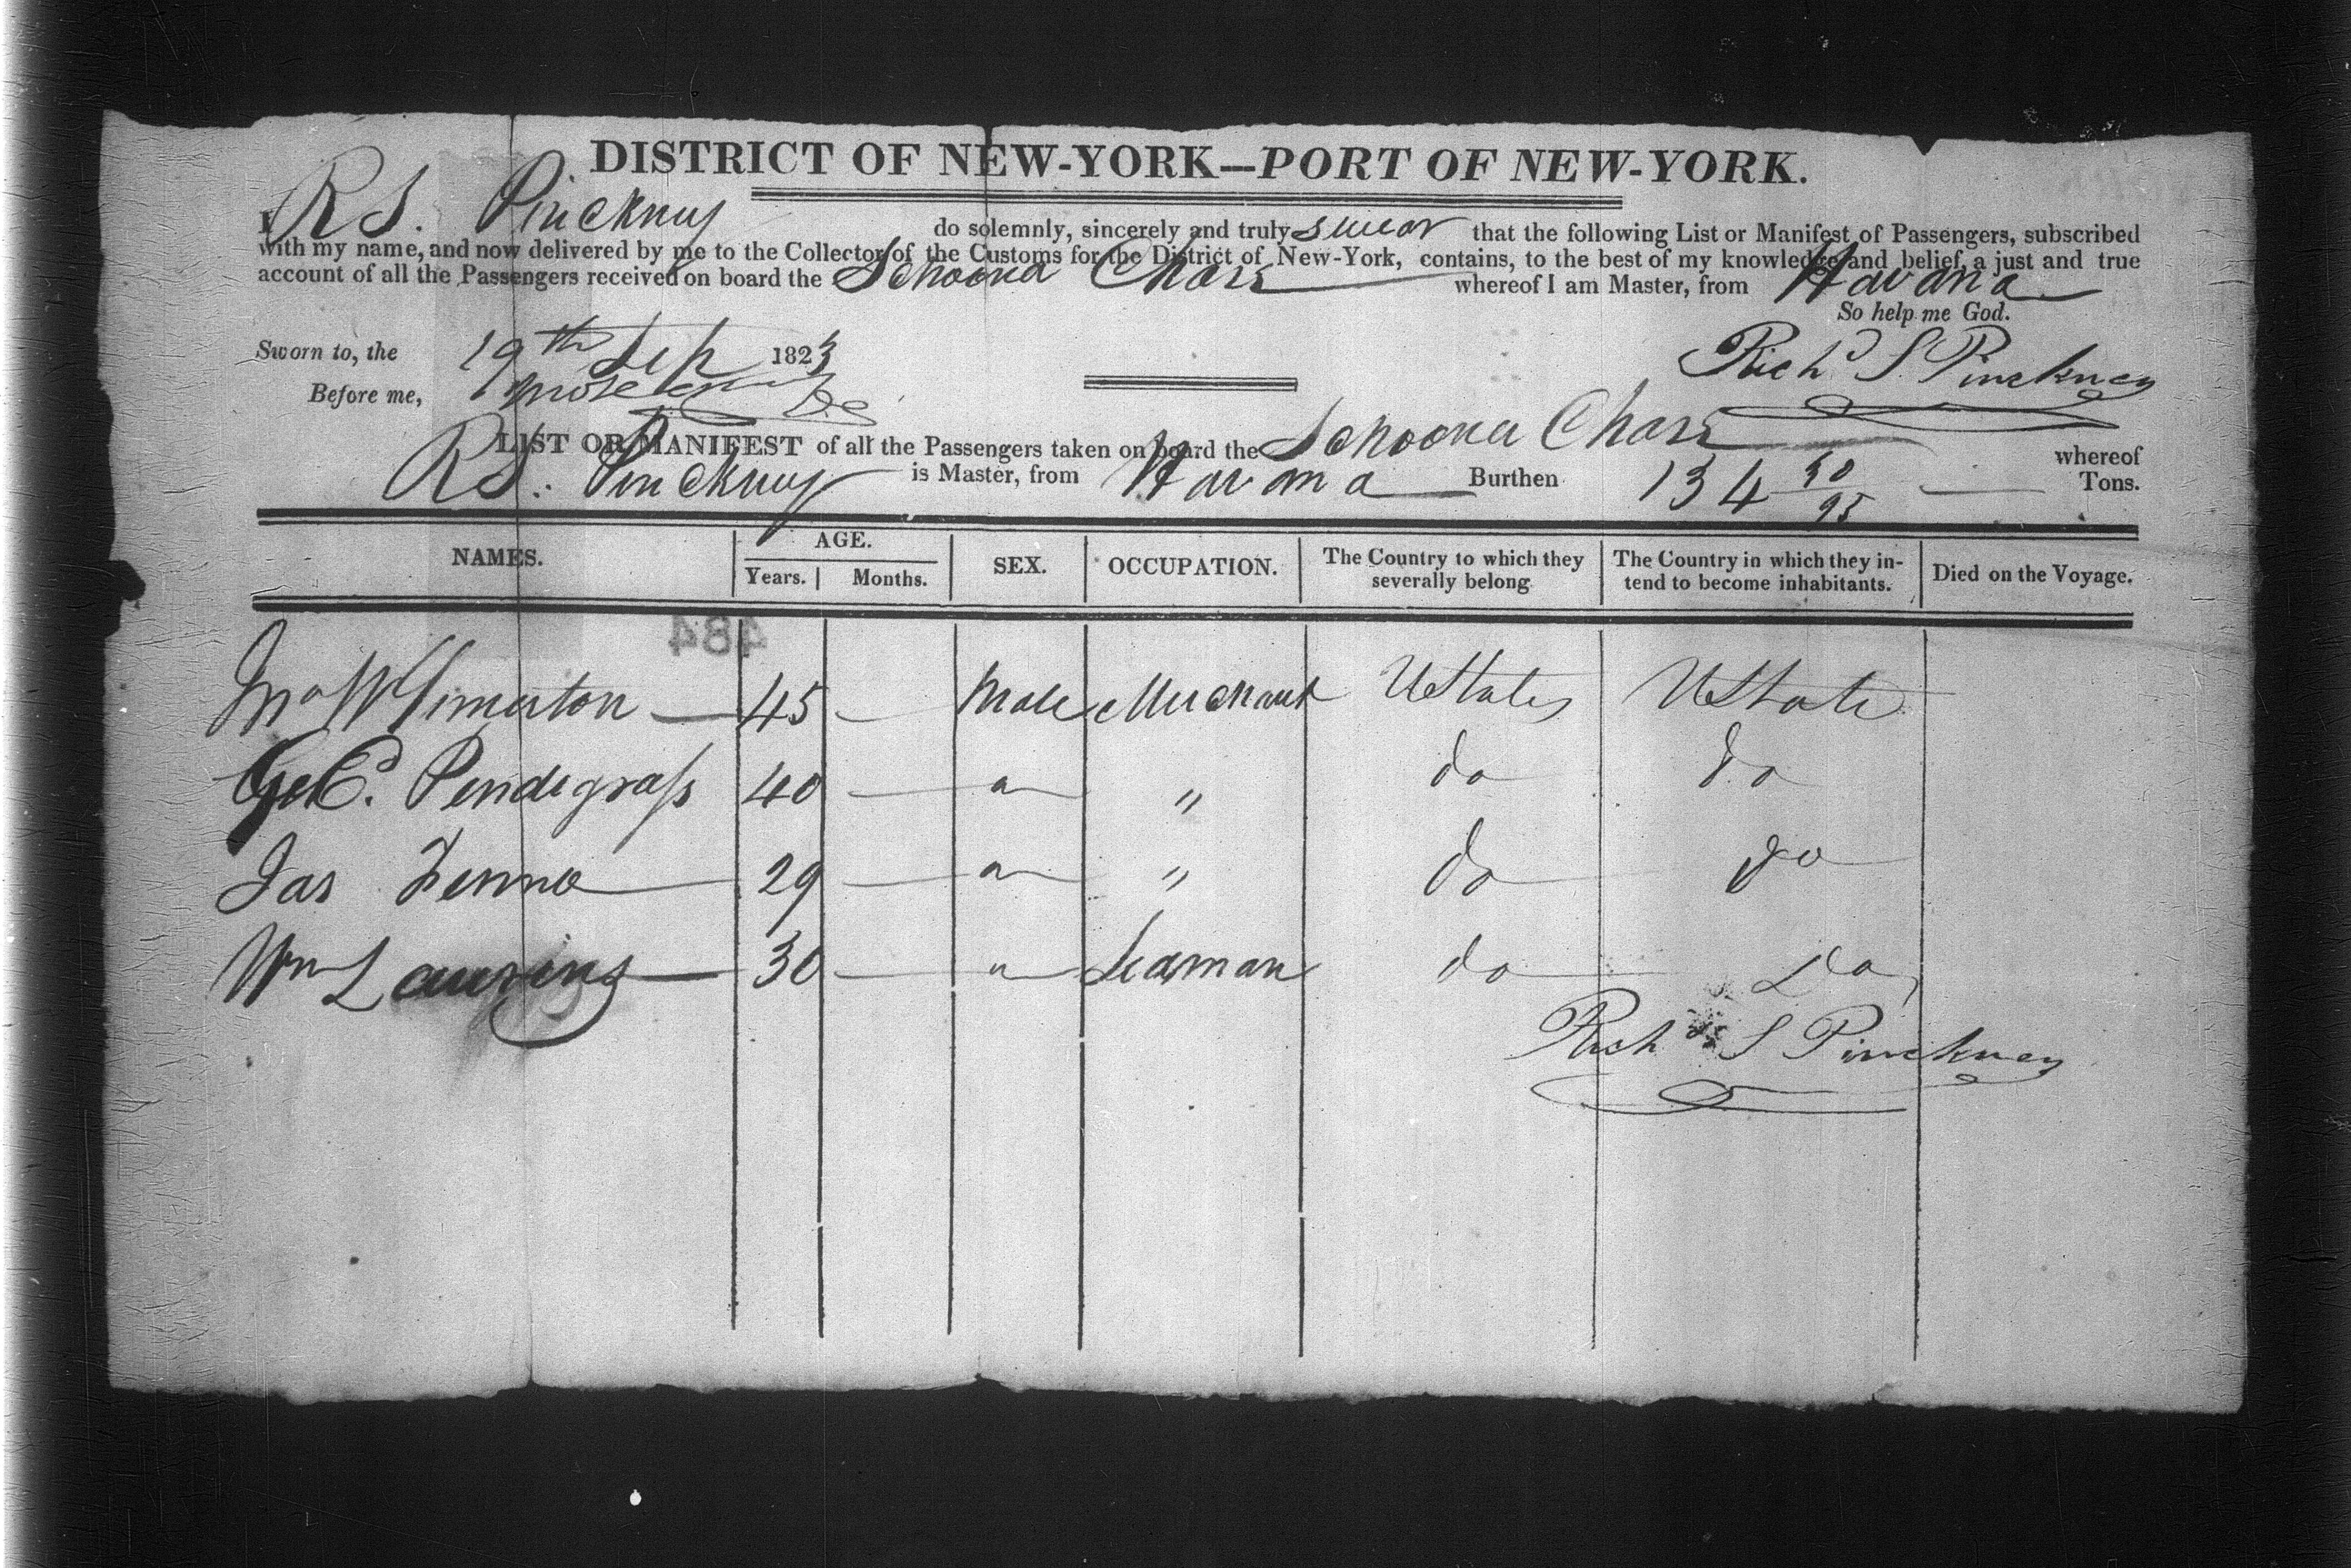 DISTRICT OF NEW-YORK—PORT OF NEW-YORK.
I R S. Pinckney do solemnly, sincerely and truly swear that the following List or Manifest of Passengers, subscribed
with my name, and now delivered by me to the Collector of the Customs for the District of New-York, contains, to the best of my knowledge and belief, a just and true
account of all the Passengers received on board the Schooner Chase whereof I am Master, from Havana
So help me God.
Sworn to, the 19th Sep 1823
Richd S. Pinckney
Before me,
LIST OR MANIFEST of all the Passengers taken on board the Schooner Chase whereof
R S. Pinckney is Master, from Havana Burthen 134 50/95 Tons.
NAMES. AGE. Years. Months. SEX. OCCUPATION. The Country to which they severally belong The Country in which they intend to become inhabitants. Died on the Voyage.
484
Jno W Simerton 45 Male Merchant UStates UState
Geo C. Pendegrass 40 " do do
Jas Fenno 29 " do do
Wm Laurens 30 Seaman do Do
Richd S Pinckney